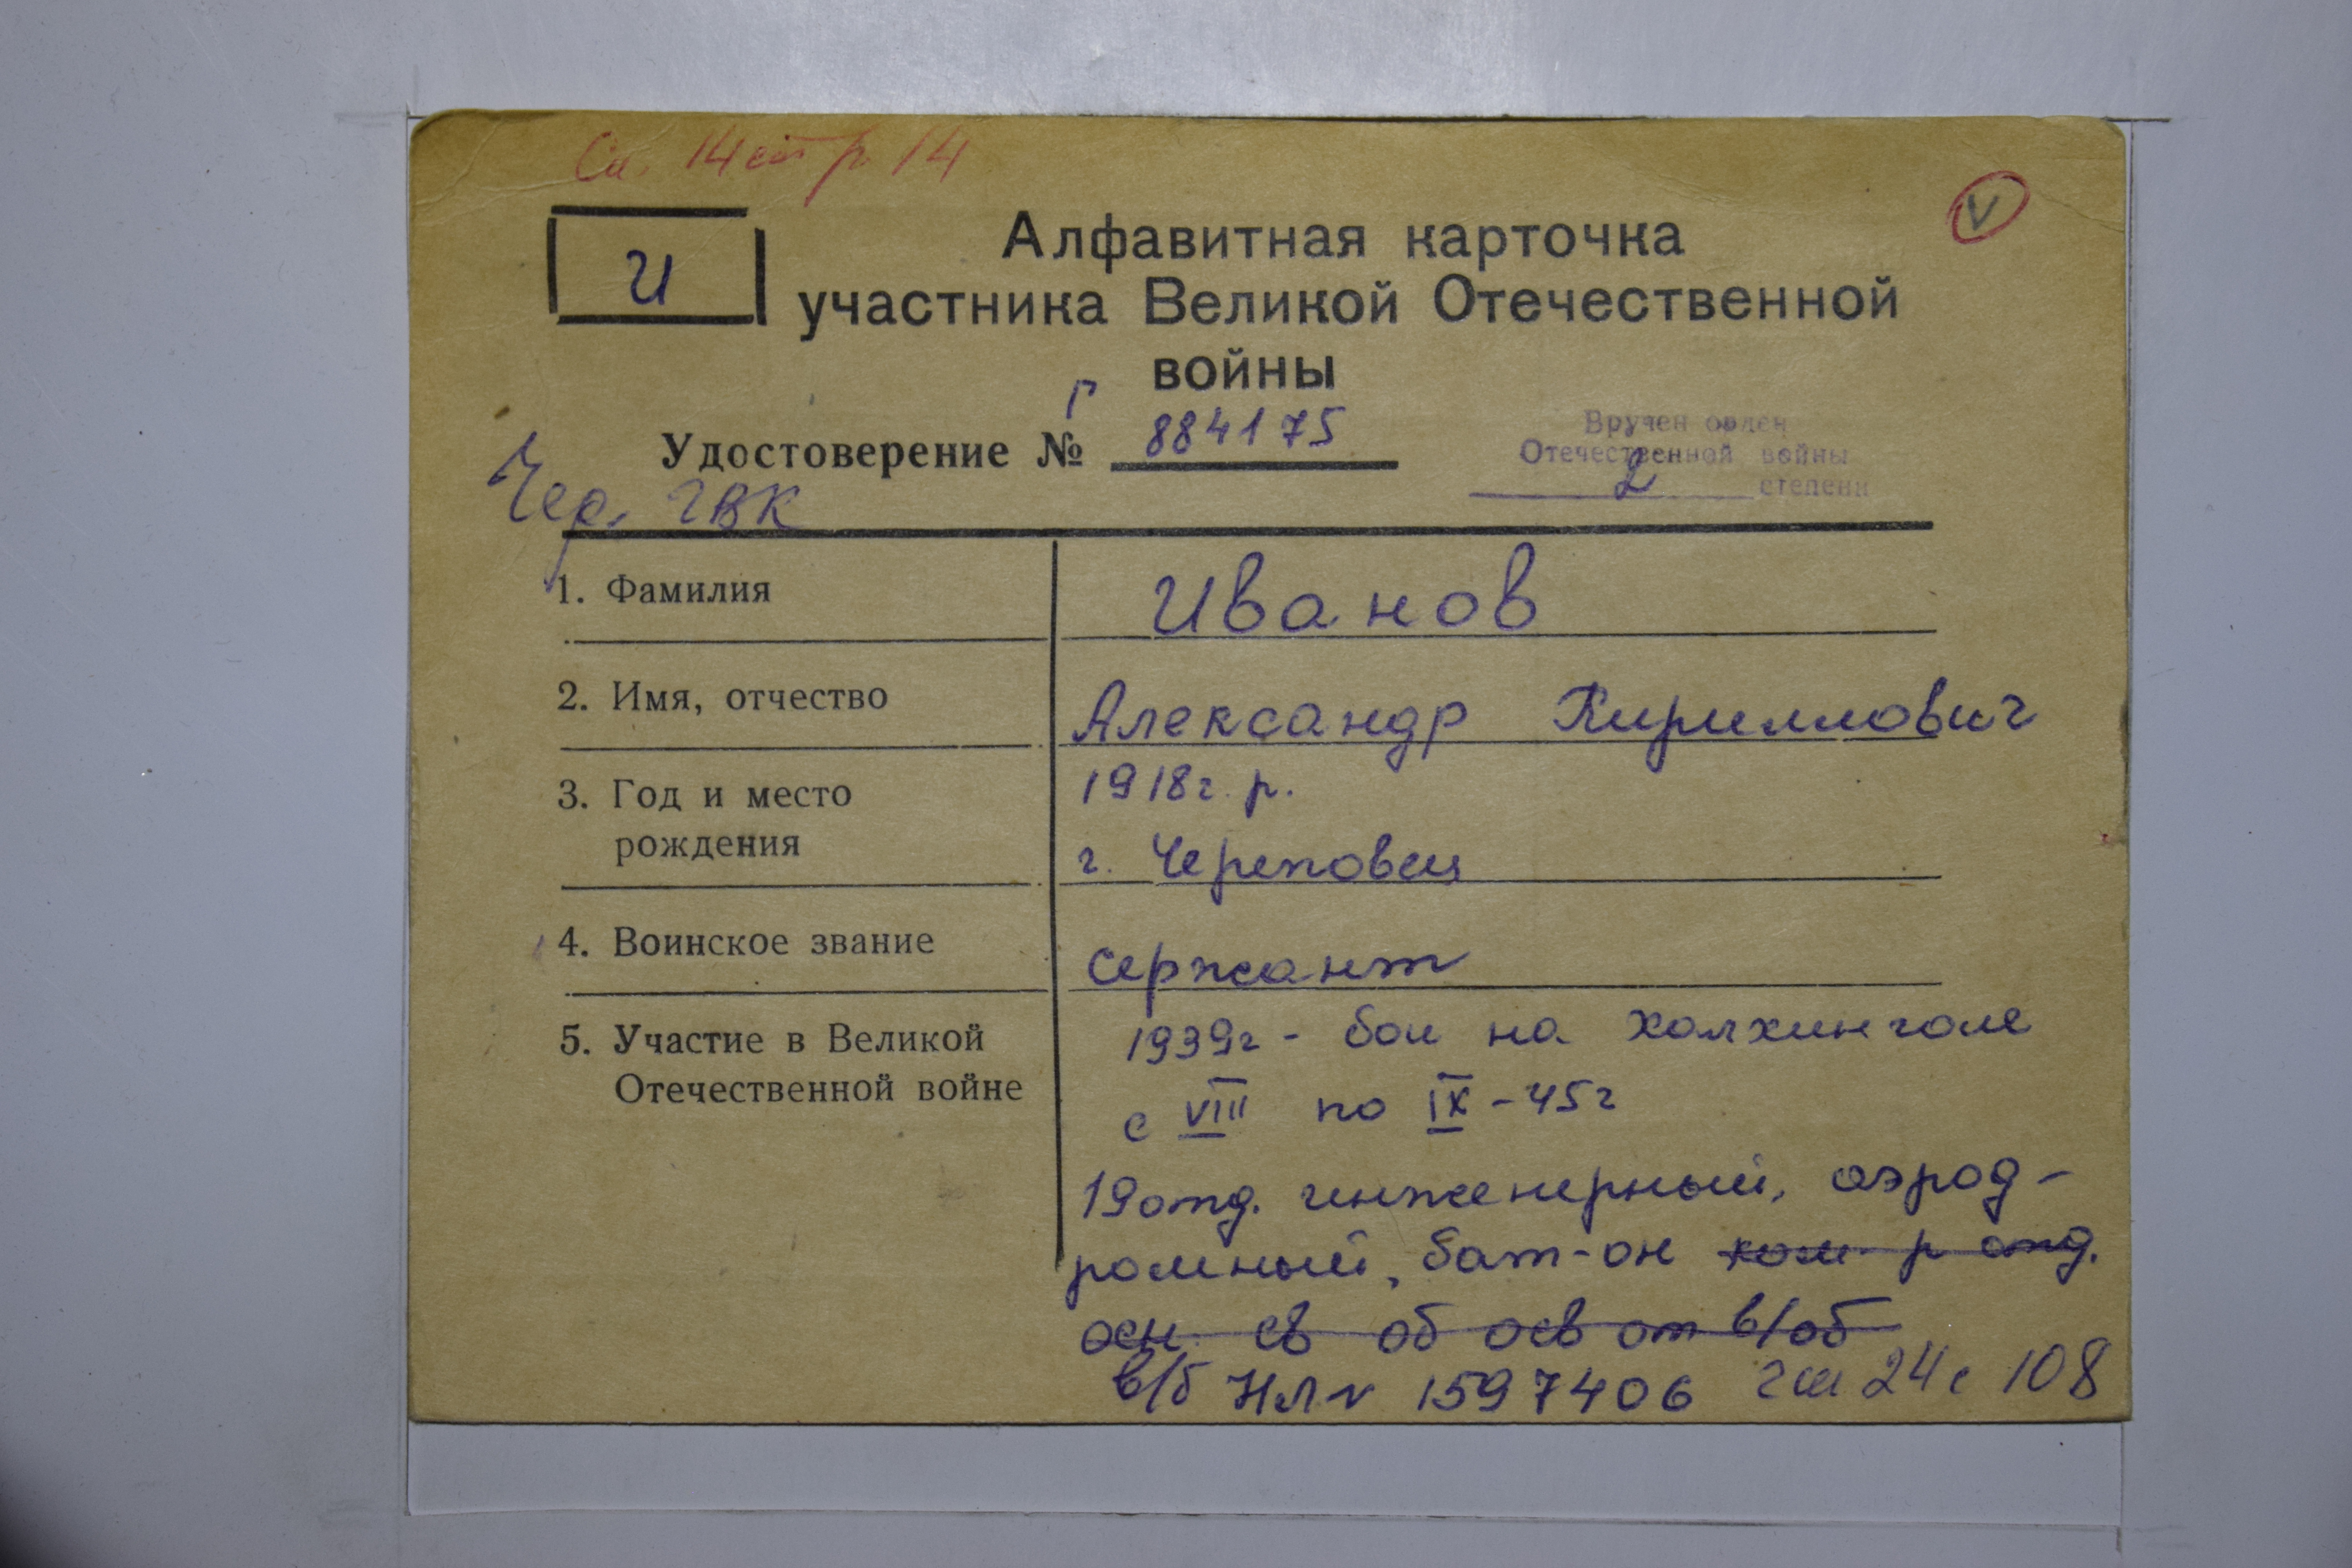 Сп. 14 стр 14
V
И
Алфавитная карточка
участника Великой Отечественной
войны
Удостоверение № Г 884175
Вручен орден
Отечественной войны
2 степени
Чер. ГВК
1. Фамилия
Иванов
2. Имя, отчество
Александр Кириллович
3. Год и место
рождения
1918 г. р.
г. Череповец
4. Воинское звание
сержант
5. Участие в Великой
Отечественной войне
1939г - бои на Халхинголе
с VIII по IX - 45г
19 отд. инженерный, аэрод-
ромный, бат-он ком. р отд.
осн. св об осв от в/об
в/б НЛ № 1597406 24 с 108